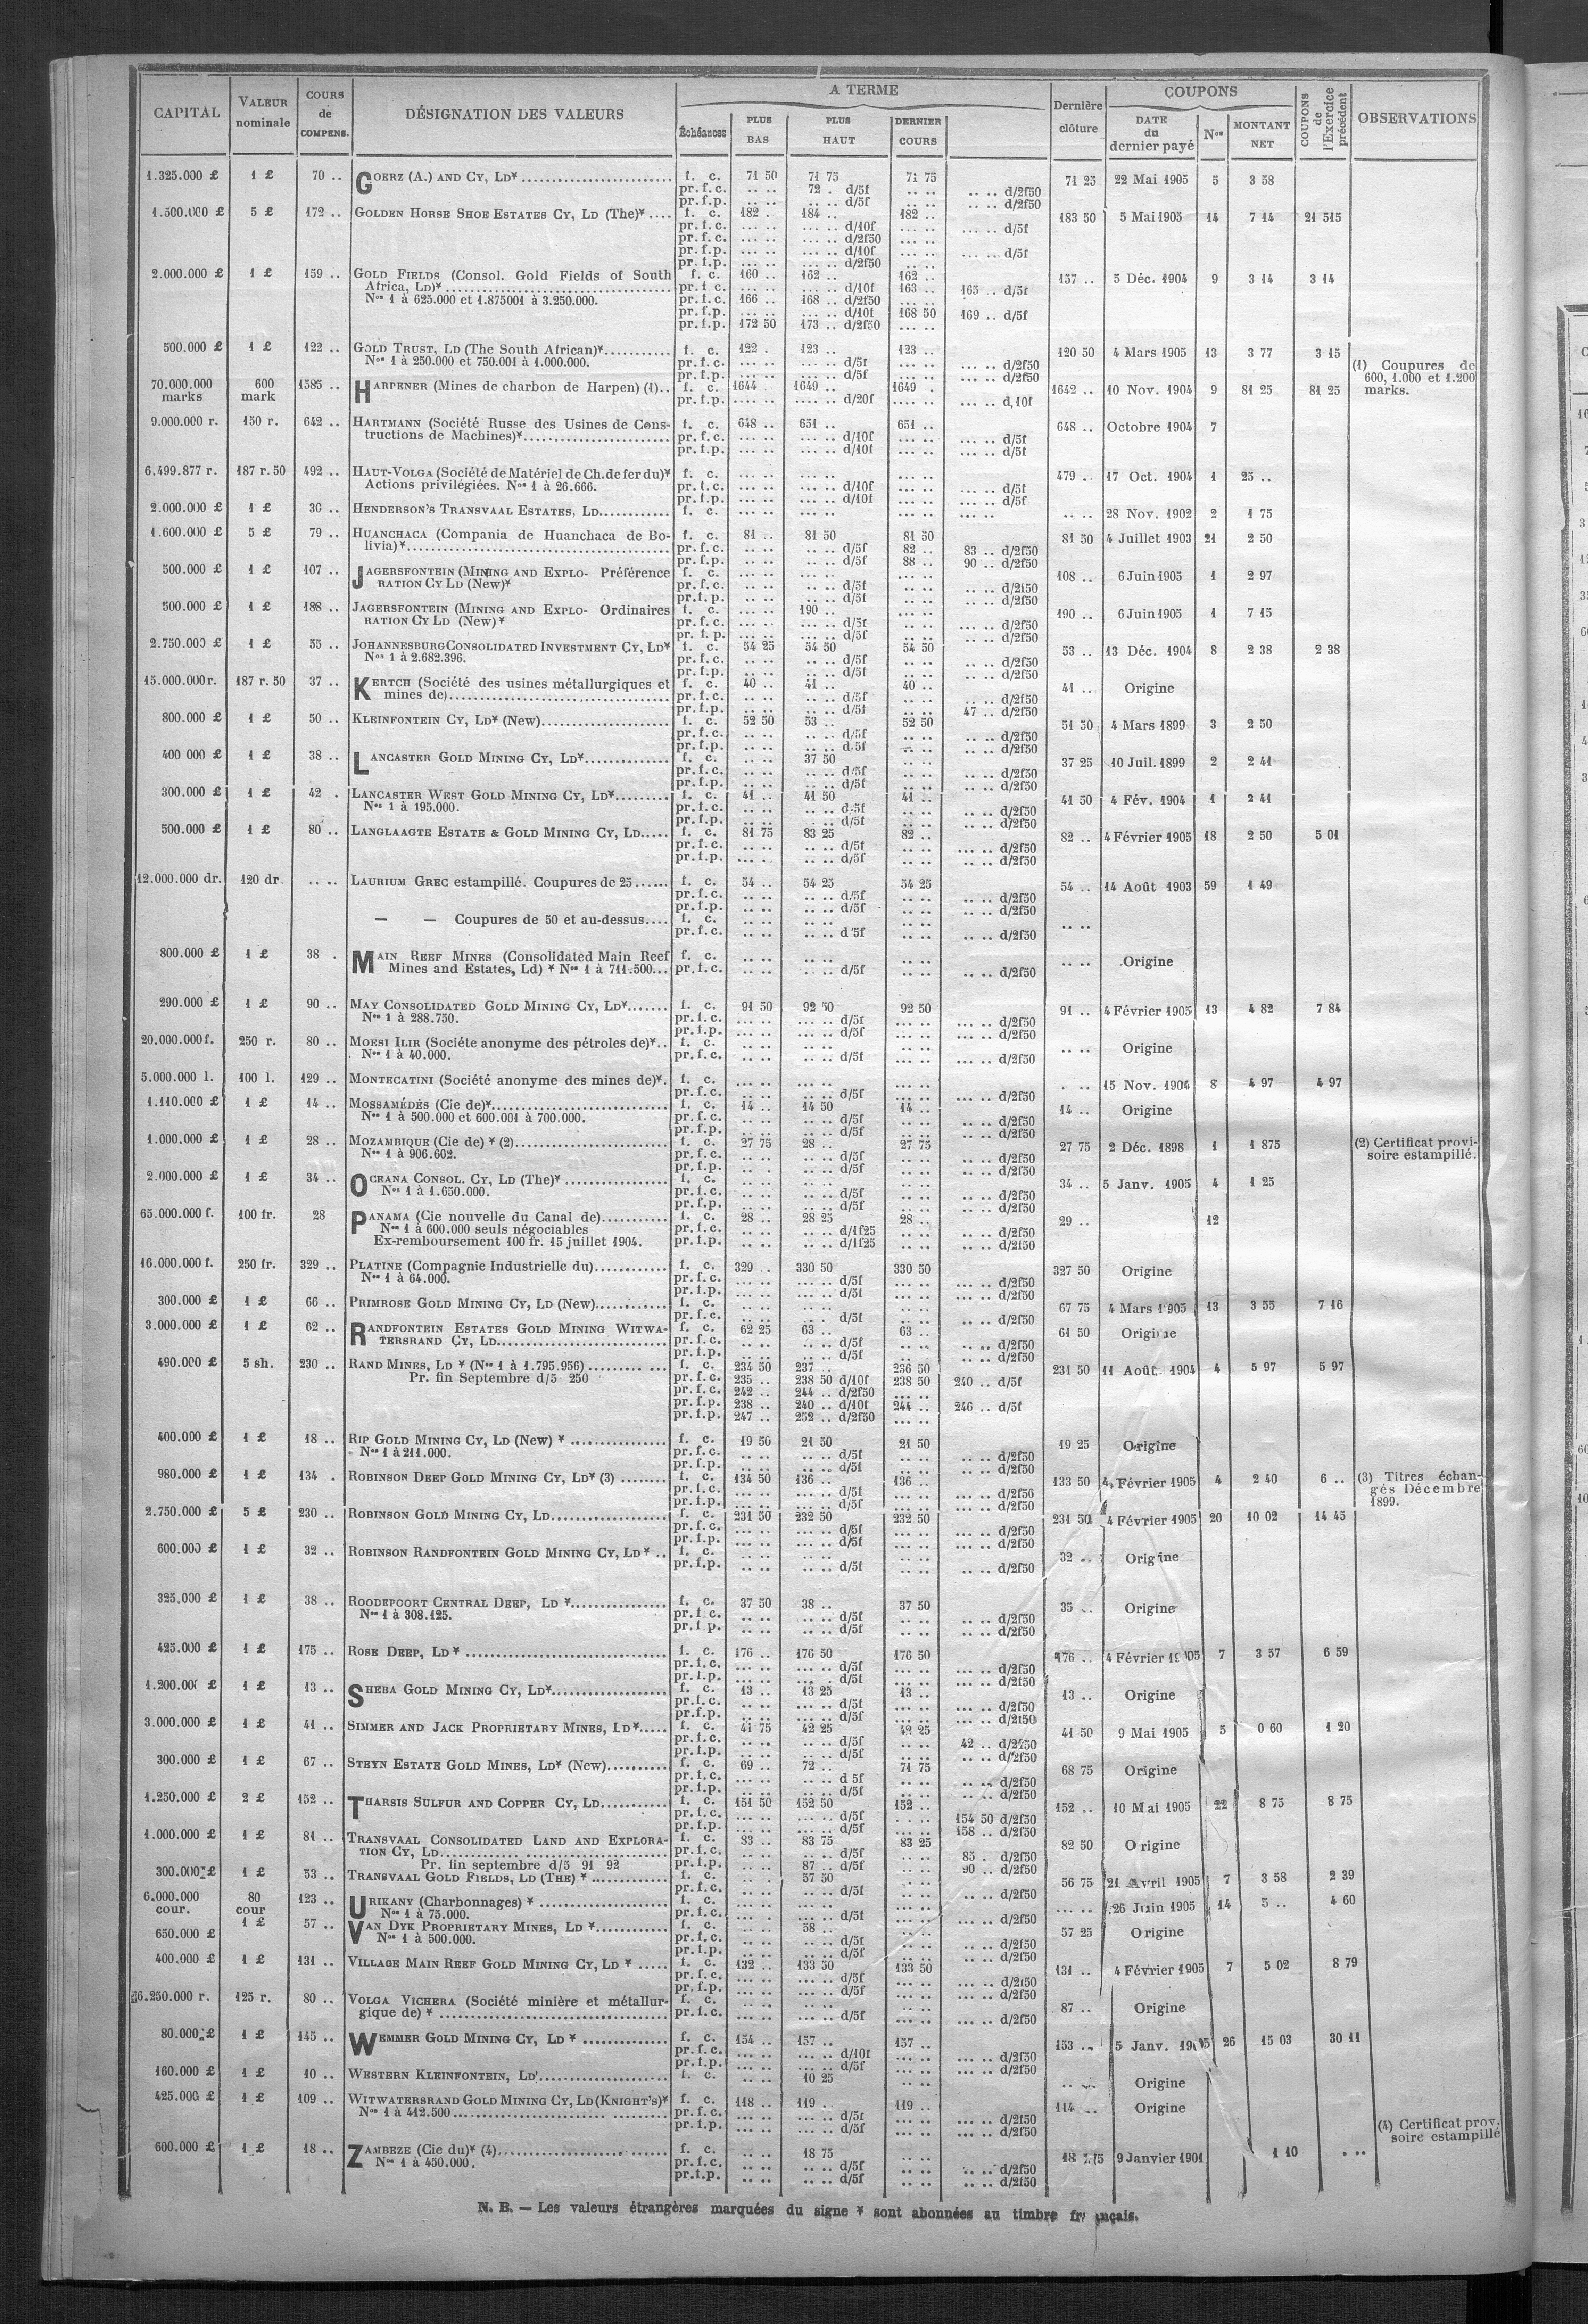 CAPITAL VALEUR nominale COURS de COMPENS. DÉSIGNATION DES VALEURS A TERME Échéances PLUS BAS PLUS HAUT DERNIER COURS Dernière clôture COUPONS DATE du dernier payé Nos MONTANT NET COUPONS de l'Exercice précédent OBSERVATIONS
1.325.000 £ 1 £ 70 .. GOERZ (A.) AND CY, LD¥ f. c. 71 50 71 75 71 75 71 25 22 Mai 1905 5 3 58
pr. f. c. .. .. 72 . d/5f .. .. .. .. d/2f50
pr. f. p. .. .. .. .. d/5f .. .. .. .. d/2f50
1.500.000 £ 5 £ 172 .. GOLDEN HORSE SHOE ESTATES CY, LD (The)¥ .... f. c. 182 . 184 .. 182 .. 183 50 5 Mai 1905 14 7 14 21 515
pr. f. c. ... .. ... .. d/10f ... .. ... .. d/5f
pr. f. c. ... .. ... .. d/2f50 ... ..
pr. f. p. ... .. ... .. d/10f ... .. ... .. d/5f
pr. f. p. ... .. ... .. d/2f50 .. ..
2.000.000 £ 1 £ 159 .. GOLD FIELDS (Consol. Gold Fields of South f. c. 160 .. 162 .. 162 .. 157 .. 5 Déc. 1904 9 3 14 3 14
Africa, LD)¥ pr. f. c. ... .. ... .. d/10f 163 .. 165 .. d/5f
Nos 1 à 625.000 et 1.875001 à 3.250.000. pr. f. c. 166 .. 168 .. d/2f50 ... ..
pr. f. p. ... .. ... .. d/10f 168 50 169 .. d/5f
pr. f. p. 172 50 173 .. d/2f50 ... ..
500.000 £ 1 £ 122 .. GOLD TRUST, LD (The South African)¥ f. c. 122 . 123 .. 123 .. 120 50 4 Mars 1905 13 3 77 3 15
Nos 1 à 250.000 et 750.001 à 1.000.000. pr. f. c. ... .. ... .. d/5f ... .. ... .. d/2f50 (1) Coupures de
pr. f. p. ... .. ... .. d/5f ... .. ... .. d/2f50 600, 1.000 et 1.200
70.000.000 600 1585 .. HARPENER (Mines de charbon de Harpen) (1).. f. c. 1644 . 1649 .. 1649 . 1642 .. 10 Nov. 1904 9 81 25 81 25 marks.
marks mark pr. f. p. .... .. .... .. d/20f .... .. .... .. d,10f
9.000.000 r. 150 r. 642 .. HARTMANN (Société Russe des Usines de Cons- f. c. 648 .. 651 .. 651 .. 648 .. Octobre 1904 7
tructions de Machines)¥ pr. f. c. ... .. ... .. d/10f ... .. ... .. d/5f
pr. f. p. ... .. ... .. d/10f ... .. ... .. d/5f
6.499.877 r. 187 r. 50 492 .. HAUT-VOLGA (Société de Matériel de Ch. de fer du)¥ f. c. ... .. ... .. ... .. 479 .. 17 Oct. 1904 1 25 ..
Actions privilégiées. Nos 1 à 26.666. pr. f. c. ... .. ... .. d/10f ... .. ... .. d/5f
pr. f. p. ... .. ... .. d/10f ... .. ... .. d/5f
2.000.000 £ 1 £ 30 .. HENDERSON'S TRANSVAAL ESTATES, LD f. c. ... .. ... .. ... .. .. .. 28 Nov. 1902 2 1 75
1.600.000 £ 5 £ 79 .. HUANCHACA (Compania de Huanchaca de Bo- f. c. 81 .. 81 50 81 50 81 50 4 Juillet 1903 21 2 50
livia)¥ pr. f. c. .. .. .. .. d/5f 82 .. 83 .. d/2f50
pr. f. p. .. .. .. .. d/5f 88 .. 90 .. d/2f50
500.000 £ 1 £ 107 .. JAGERSFONTEIN (MINING AND EXPLO- Préférence f. c. ... .. ... .. ... .. 108 .. 6 Juin 1905 1 2 97
RATION CY LD (New)¥ pr. f. c. .. .. .. .. d/5f .. .. .. .. d/2f50
pr. f. p. .. .. .. .. d/5f .. .. .. .. d/2f50
500.000 £ 1 £ 188 .. JAGERSFONTEIN (MINING AND EXPLO- Ordinaires f. c. ... .. 190 .. ... .. 190 .. 6 Juin 1905 1 7 15
RATION CY LD (New)¥ pr. f. c. ... .. ... .. d/5f .. .. .. .. d/2f50
pr. f. p. ... .. ... .. d/5f .. .. .. .. d/2f50
2.750.000 £ 1 £ 55 .. JOHANNESBURG CONSOLIDATED INVESTMENT CY, LD¥ f. c. 54 25 54 50 54 50 53 .. 13 Déc. 1904 8 2 38 2 38
Nos 1 à 2.682.396. pr. f. c. .. .. .. .. d/5f .. .. .. .. d/2f50
pr. f. p. .. .. .. .. d/5f .. .. .. .. d/2f50
15.000.000 r. 187 r. 50 37 .. KERTCH (Société des usines métallurgiques et f. c. 40 .. 41 .. 40 .. 41 .. Origine
mines de) pr. f. c. .. .. .. .. d/5f .. .. .. .. d/2f50
pr. f. p. .. .. .. .. d/5f .. .. 47 .. d/2f50
800.000 £ 1 £ 50 .. KLEINFONTEIN CY, LD¥ (New) f. c. 52 50 53 .. 52 50 51 50 4 Mars 1899 3 2 50
pr. f. c. .. .. .. .. d/5f .. .. .. .. d/2f50
pr. f. p. .. .. .. .. d/5f .. .. .. .. d/2f50
400 000 £ 1 £ 38 .. LANCASTER GOLD MINING CY, LD¥ f. c. .. .. 37 50 .. .. 37 25 10 Juil. 1899 2 2 41
pr. f. c. .. .. .. .. d/5f .. .. .. .. d/2f50
pr. f. p. .. .. .. .. d/5f .. .. .. .. d/2f50
300.000 £ 1 £ 42 . LANCASTER WEST GOLD MINING CY, LD¥ f. c. 41 .. 41 50 41 .. 41 50 4 Fév. 1904 1 2 41
Nos 1 à 195.000. pr. f. c. .. .. .. .. d/5f .. .. .. .. d/2f50
pr. f. p. .. .. .. .. d/5f .. .. .. .. d/2f50
500.000 £ 1 £ 80 .. LANGLAAGTE ESTATE & GOLD MINING CY, LD f. c. 81 75 83 25 82 .. 82 .. 4 Février 1905 18 2 50 5 01
pr. f. c. .. .. .. .. d/5f .. .. ... .. d/2f50
pr. f. p. ... . .. .. d/5f .. .. ... .. d/2f50
12.000.000 dr. 120 dr. .. .. LAURIUM GREC estampillé. Coupures de 25 f. c. 54 .. 54 25 54 25 54 .. 14 Août 1903 59 1 49
pr. f. c. .. .. .. .. d/5f .. .. .. .. d/2f50
pr. f. p. .. .. .. .. d/5f .. .. .. .. d/2f50
— — Coupures de 50 et au-dessus.... f. c. .. .. .. .. .. .. .. ..
pr. f. c. .. .. .. .. d 5f .. .. .. .. d/2f50
800.000 £ 1 £ 38 . MAIN REEF MINES (Consolidated Main Reef f. c. .. .. .. .. .. .. .. .. Origine
Mines and Estates, Ld) ¥ Nos 1 à 711.500... pr. f. c. .. .. .. .. d/5f .. .. .. .. d/2f50
290.000 £ 1 £ 90 .. MAY CONSOLIDATED GOLD MINING CY, LD¥ f. c. 91 50 92 50 92 50 91 .. 4 Février 1905 13 4 82 7 84
Nos 1 à 288.750. pr. f. c. ... .. ... .. d/5f ... .. ... .. d/2f50
pr. f. p. ... .. ... .. d/5f ... .. ... .. d/2f50
20.000.000 f. 250 r. 80 .. MOESI ILIR (Sociéte anonyme des pétroles de)¥.. f. c. .. .. .. .. .. .. .. .. Origine
Nos 1 à 40.000. pr. f. c. .. .. .. .. d/5f .. .. ... .. d/2f50
5.000.000 l. 100 l. 129 .. MONTECATINI (Société anonyme des mines de)¥. f. c. ... .. ... .. ... .. . .. 15 Nov. 1904 8 4 97 4 97
pr. f. c. ... .. ... .. d/5f ... .. ... .. d/2f50
1.110.000 £ 1 £ 14 .. MOSSAMÉDÈS (Cie de)¥ f. c. 14 .. 14 50 14 .. 14 .. Origine
Nos 1 à 500.000 et 600.001 à 700.000. pr. f. c. .. .. .. .. d/5f .. .. .. .. d/2f50
pr. f. p. .. .. .. .. d/5f .. .. .. .. d/2f50
1.000.000 £ 1 £ 28 .. MOZAMBIQUE (Cie de) ¥ (2) f. c. 27 75 28 .. 27 75 27 75 2 Déc. 1898 1 1 875 (2) Certificat provi-
Nos 1 à 906.602. pr. f. c. .. .. .. .. d/5f .. .. .. .. d/2f50 soire estampillé.
pr. f. p. .. .. .. .. d/5f .. .. .. .. d/2f50
2.000.000 £ 1 £ 34 .. OCEANA CONSOL. CY, LD (The)¥ f. c. .. .. .. .. .. .. 34 .. 5 Janv. 1905 4 1 25
Nos 1 à 1.650.000. pr. f. c. .. .. .. .. d/5f .. .. .. .. d/2f50
pr. f. p. .. .. .. .. d/5f .. .. .. .. d/2f50
65.000.000 f. 100 fr. 28 PANAMA (Cie nouvelle du Canal de) f. c. 28 .. 28 25 28 .. 29 .. 12
Nos 1 à 600.000 seuls négociables pr. f. c. .. .. .. .. d/1f25 .. .. .. .. d/2f50
Ex-remboursement 100 fr. 15 juillet 1904. pr. f. p. .. .. .. .. d/1f25 .. .. .. .. d/2f50
16.000.000 f. 250 fr. 329 .. PLATINE (Compagnie Industrielle du) f. c. 329 .. 330 50 330 50 327 50 Origine
Nos 1 à 64.000. pr. f. c. ... .. ... .. d/5f ... .. ... .. d/2f50
pr. f. p. ... .. ... .. d/5f ... .. ... .. d/2f50
300.000 £ 1 £ 66 .. PRIMROSE GOLD MINING CY, LD (New) f. c. .. .. .. .. .. .. 67 75 4 Mars 1905 13 3 55 7 16
pr. f. c. .. .. .. .. d/5f .. .. ... .. d/2f50
3.000.000 £ 1 £ 62 .. RANDFONTEIN ESTATES GOLD MINING WITWA- f. c. 62 25 63 .. 63 .. 61 50 Origine
TERSRAND CY, LD pr. f. c. .. .. .. .. d/5f .. .. .. .. d/2f50
pr. f. p. .. .. .. .. d/5f .. .. .. .. d/2f50
490.000 £ 5 sh. 230 .. RAND MINES, LD ¥ (Nos 1 à 1.795.956) f. c. 234 50 237 .. 236 50 231 50 11 Août 1904 4 5 97 5 97
Pr. fin Septembre d/5 250 pr. f. c. 235 .. 238 50 d/10f 238 50 240 .. d/5f
pr. f. c. 242 .. 244 .. d/2f50 ... ..
pr. f. p. 238 .. 240 .. d/10f 244 .. 246 .. d/5f
pr. f. p. 247 .. 252 .. d/2f50 ... ..
400.000 £ 1 £ 18 .. RIP GOLD MINING CY, LD (New) ¥ f. c. 19 50 21 50 21 50 19 25 Origine
Nos 1 à 211.000. pr. f. c. .. .. .. .. d/5f .. .. .. .. d/2f50
pr. f. p. .. .. .. .. d/5f .. .. .. .. d/2f50
980.000 £ 1 £ 134 . ROBINSON DEEP GOLD MINING CY, LD¥ (3) f. c. 134 50 136 .. 136 .. 133 50 4 Février 1905 4 2 40 6 .. (3) Titres échan-
pr. f. c. ... .. ... .. d/5f ... .. ... .. d/2f50 gés Décembre
pr. f. p. ... .. ... .. d/5f ... .. ... .. d/2f50 1899.
2.750.000 £ 5 £ 230 .. ROBINSON GOLD MINING CY, LD f. c. 231 50 232 50 232 50 231 50 4 Février 1905 20 10 02 14 45
pr. f. c. ... .. ... .. d/5f ... .. ... .. d/2f50
pr. f. p. ... .. ... .. d/5f ... .. ... .. d/2f50
600.000 £ 1 £ 32 .. ROBINSON RANDFONTEIN GOLD MINING CY, LD ¥ .. f. c. .. .. .. .. .. .. 32 .. Origine
pr. f. p. .. .. .. .. d/5f .. .. .. .. d/2f50
325.000 £ 1 £ 38 .. ROODEPOORT CENTRAL DEEP, LD ¥ f. c. 37 50 38 .. 37 50 35 .. Origine
Nos 1 à 308.125. pr. f. c. .. .. .. .. d/5f .. .. .. .. d/2f50
pr. f. p. .. .. .. .. d/5f .. .. .. .. d/2f50
425.000 £ 1 £ 175 .. ROSE DEEP, LD ¥ f. c. 176 .. 176 50 176 50 176 .. 4 Février 1905 7 3 57 6 59
pr. f. c. ... .. ... .. d/5f ... .. ... .. d/2f50
pr. f. p. ... .. ... .. d/5f ... .. ... .. d/2f50
1.200.000 £ 1 £ 13 .. SHEBA GOLD MINING CY, LD¥ f. c. 13 .. 13 25 13 .. 13 .. Origine
pr. f. c. ... .. ... .. d/5f ... .. ... .. d/2f50
pr. f. p. ... .. ... .. d/5f ... .. ... .. d/2f50
3.000.000 £ 1 £ 41 .. SIMMER AND JACK PROPRIETARY MINES, LD¥ f. c. 41 75 42 25 42 25 41 50 9 Mai 1905 5 0 60 1 20
pr. f. c. .. .. .. .. d/5f .. .. 42 .. d/2f50
pr. f. p. .. .. .. .. d/5f .. .. .. .. d/2f50
300.000 £ 1 £ 67 .. STEYN ESTATE GOLD MINES, LD¥ (New) f. c. 69 .. 72 .. 71 75 68 75 Origine
pr. f. c. .. .. .. .. d 5f .. .. .. .. d/2f50
pr. f. p. .. .. .. .. d/5f .. .. .. .. d/2f50
1.250.000 £ 2 £ 152 .. THARSIS SULFUR AND COPPER CY, LD f. c. 151 50 152 50 152 .. 152 .. 10 Mai 1905 22 8 75 8 75
pr. f. c. ... .. ... .. d/5f ... .. 154 50 d/2f50
pr. f. p. ... .. ... .. d/5f ... .. 158 .. d/2f50
1.000.000 £ 1 £ 81 .. TRANSVAAL CONSOLIDATED LAND AND EXPLORA- f. c. 83 .. 83 75 83 25 82 50 Origine
TION CY, LD pr. f. c. .. .. .. .. d/5f .. .. 85 . d/2f50
Pr. fin septembre d/5 91 92 pr. f. p. .. .. 87 .. d/5f .. .. 90 .. d/2f50
300.000 £ 1 £ 53 .. TRANSVAAL GOLD FIELDS, LD (THE) ¥ f. c. .. .. 57 50 .. .. 56 75 21 Avril 1905 7 3 58 2 39
pr. f. c. .. .. .. .. d/5f .. .. .. .. d/2f50
6.000.000 80 123 .. URIKANY (Charbonnages) ¥ f. c. ... .. ... .. ... .. ... .. 26 Juin 1905 14 5 .. 4 60
cour. cour Nos 1 à 75.000. pr. f. c. ... . ... .. d/5f ... .. ... .. d/2f50
650.000 £ 1 £ 57 .. VAN DYK PROPRIETARY MINES, LD ¥ f. c. .. .. 58 .. .. .. 57 25 Origine
Nos 1 à 500.000. pr. f. c. .. .. .. .. d/5f .. .. .. .. d/2f50
pr. f. p. .. .. .. .. d/5f .. .. .. .. d/2f50
400.000 £ 1 £ 131 .. VILLAGE MAIN REEF GOLD MINING CY, LD ¥ f. c. 132 .. 133 50 133 50 131 .. 4 Février 1905 7 5 02 8 79
pr. f. c. ... .. ... .. d/5f ... .. ... .. d/2f50
pr. f. p. ... .. ... .. d/5f ... .. ... .. d/2f50
6.250.000 r. 125 r. 80 .. VOLGA VICHERA (Société minière et métallur- f. c. .. .. .. .. .. .. 87 .. Origine
gique de) ¥ pr. f. c. .. .. .. .. d/5f .. .. .. .. d/2f50
80.000 £ 1 £ 145 .. WEMMER GOLD MINING CY, LD ¥ f. c. 154 .. 157 .. 157 .. 153 .. 5 Janv. 1905 26 15 03 30 11
pr. f. c. ... .. ... .. d/10f ... .. ... .. d/2f50
pr. f. p. ... .. ... .. d/5f ... .. ... .. d/2f50
160.000 £ 1 £ 10 .. WESTERN KLEINFONTEIN, LD f. c. .. .. 10 25 .. .. .. .. Origine
425.000 £ 1 £ 109 .. WITWATERSRAND GOLD MINING CY, LD (KNIGHT'S)¥ f. c. 118 .. 119 .. 119 .. 114 .. Origine
Nos 1 à 412.500 pr. f. c. ... .. ... .. d/5f ... .. ... .. d/2f50
pr. f. p. ... .. ... .. d/5f ... .. ... .. d/2f50 (4) Certificat prov.
soire estampillé
600.000 £ 1 £ 18 .. ZAMBEZE (Cie du)¥ (4) f. c. .. .. 18 75 .. .. 18 75 9 Janvier 1901 1 10 . ..
Nos 1 à 450.000. pr. f. c. .. .. .. .. d/5f .. .. .. .. d/2f50
pr. f. p. .. .. .. .. d/5f .. .. .. .. d/2f50
N. B. — Les valeurs étrangères marquées du signe ¥ sont abonnées au timbre français.